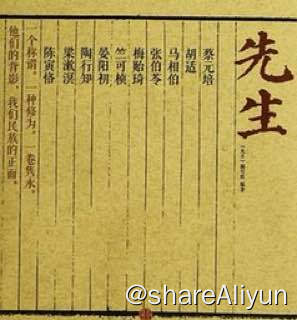 先生
《先生》编写组 编著
蔡元培
胡适
马相伯
张伯苓
梅贻琦
竺可桢
晏阳初
陶行知
梁漱溟
陈寅恪
一个称谓，一种修为，一卷隽永，
他们的背影，我们民族的正面。
@shareAliyun